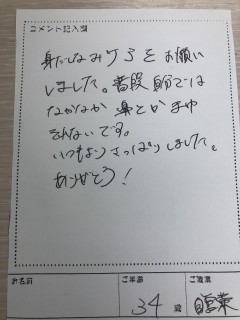 コメント記入欄
身だしなみ90をお願い
しました。普段自分では
なかなか鼻とかまゆ
それないです。
いつもよりさっぱりしました。
ありがとう!
お名前
ご年齢
34 歳
ご職業
自営業